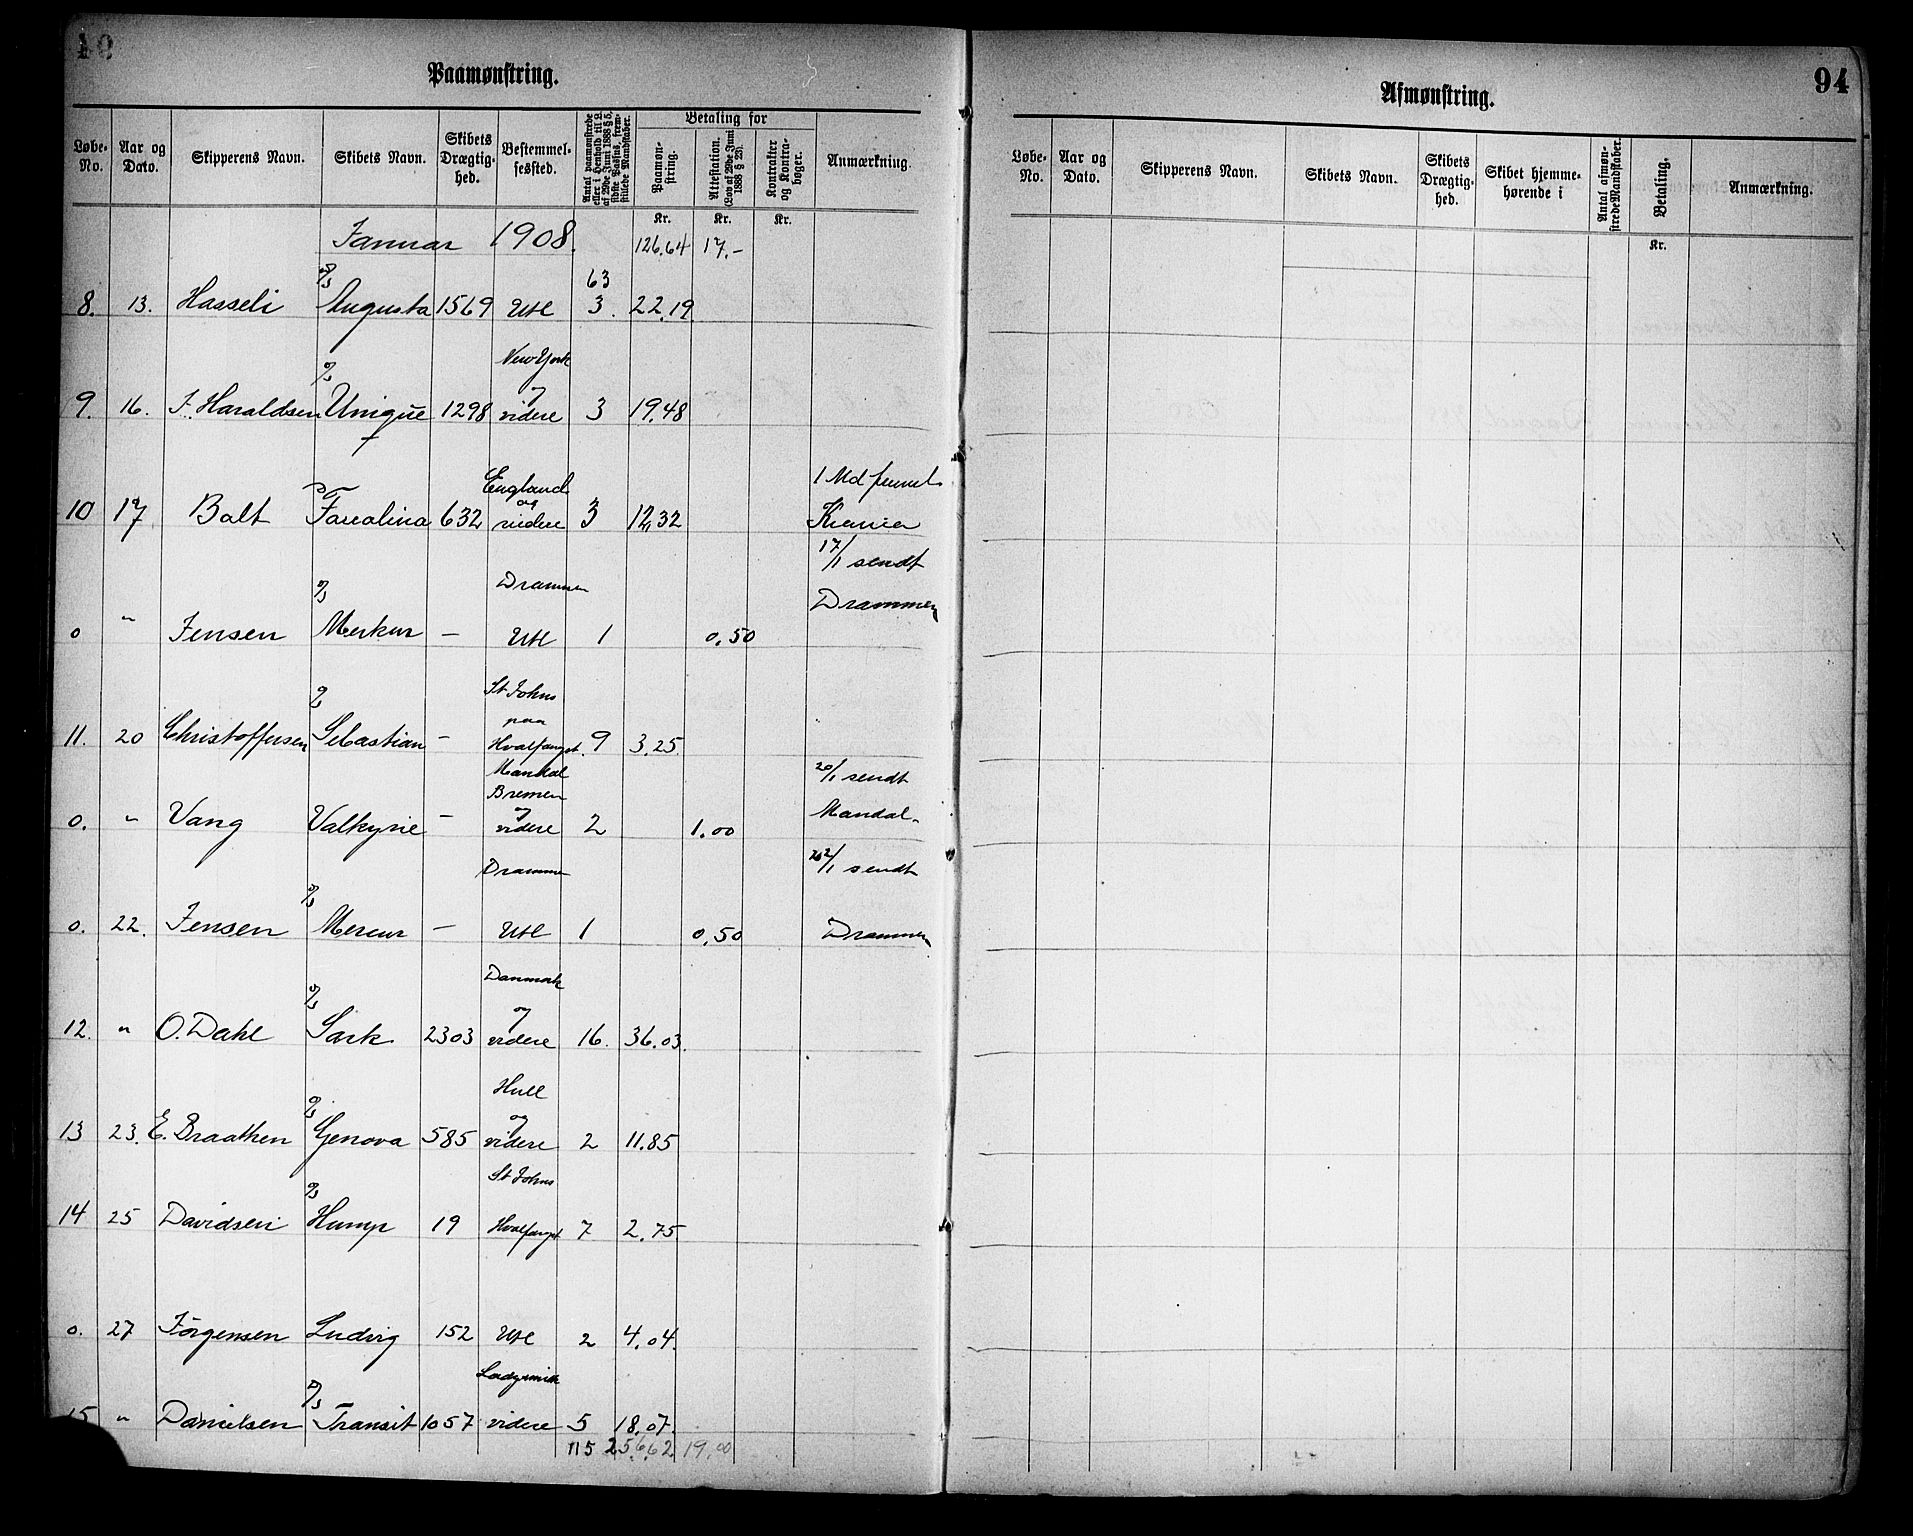 Paamønstring.
Løbe-No. Aar og Dato. Skipperens Navn. Skibets Navn. Skibets Drægtighed. Bestemmelsessted. Antal paamønstrede eller i Henhold til L. af 29de Juni 1888 § 5, sidste Passus, fremstillede Mandskaber. Betaling for Paamønstring. Attestation. (Lov af 29de Juni 1888 § 23). Kontrakter og Kontrabøger. Anmærkning.
Kr. Kr. Kr.
Januar 1908. 126.64 17.-
63
8. 13. Hasseli Augusta 1569 Utl 3. 22.19
New York
og
9. 16. J. Haraldsen Unique 1298 videre 3 19.48
England 1 Md
og
10 17 Balt 632 videre 3 12,32
17/1 sendt
Drammen Drammen
0 " Jensen Merkur - Utl 1 0.50
St Johns
paa
11. 20 Christoffersen Sebastian - Hvalfanget. 9 3.25
Mandal 20/1 sendt
Bremen
og Mandal.
0. " Vang Valkyrie - videre 2 1.00
Drammen 22/1 sendt
0. 22. Jensen Mercur - Utl 1 0,50 Drammen
Danmark
og
12. " O. Dahl Sark 2303 videre 16. 36.03
Hull
og
13 23. E. Braathen Genova 585 videre 2 11.85
St Johns
14 25 Davidsen Hump 19 Hvalfanget 7 2.75
0. 27 Jörgensen Ludvig 152 Utl 2 4.04.
Ladysmith
15 " Danielsen Transit 1057 videre 5 18.07.
115 256.62 19.00
94
Afmønstring.
Løbe-No. Aar og Dato. Skipperens Navn. Skibets Navn. Skibets Drægtighed. Skibet hjemmehørende i Antal afmønstrede Mandskaber. Betaling. Anmærkning.
Kr.